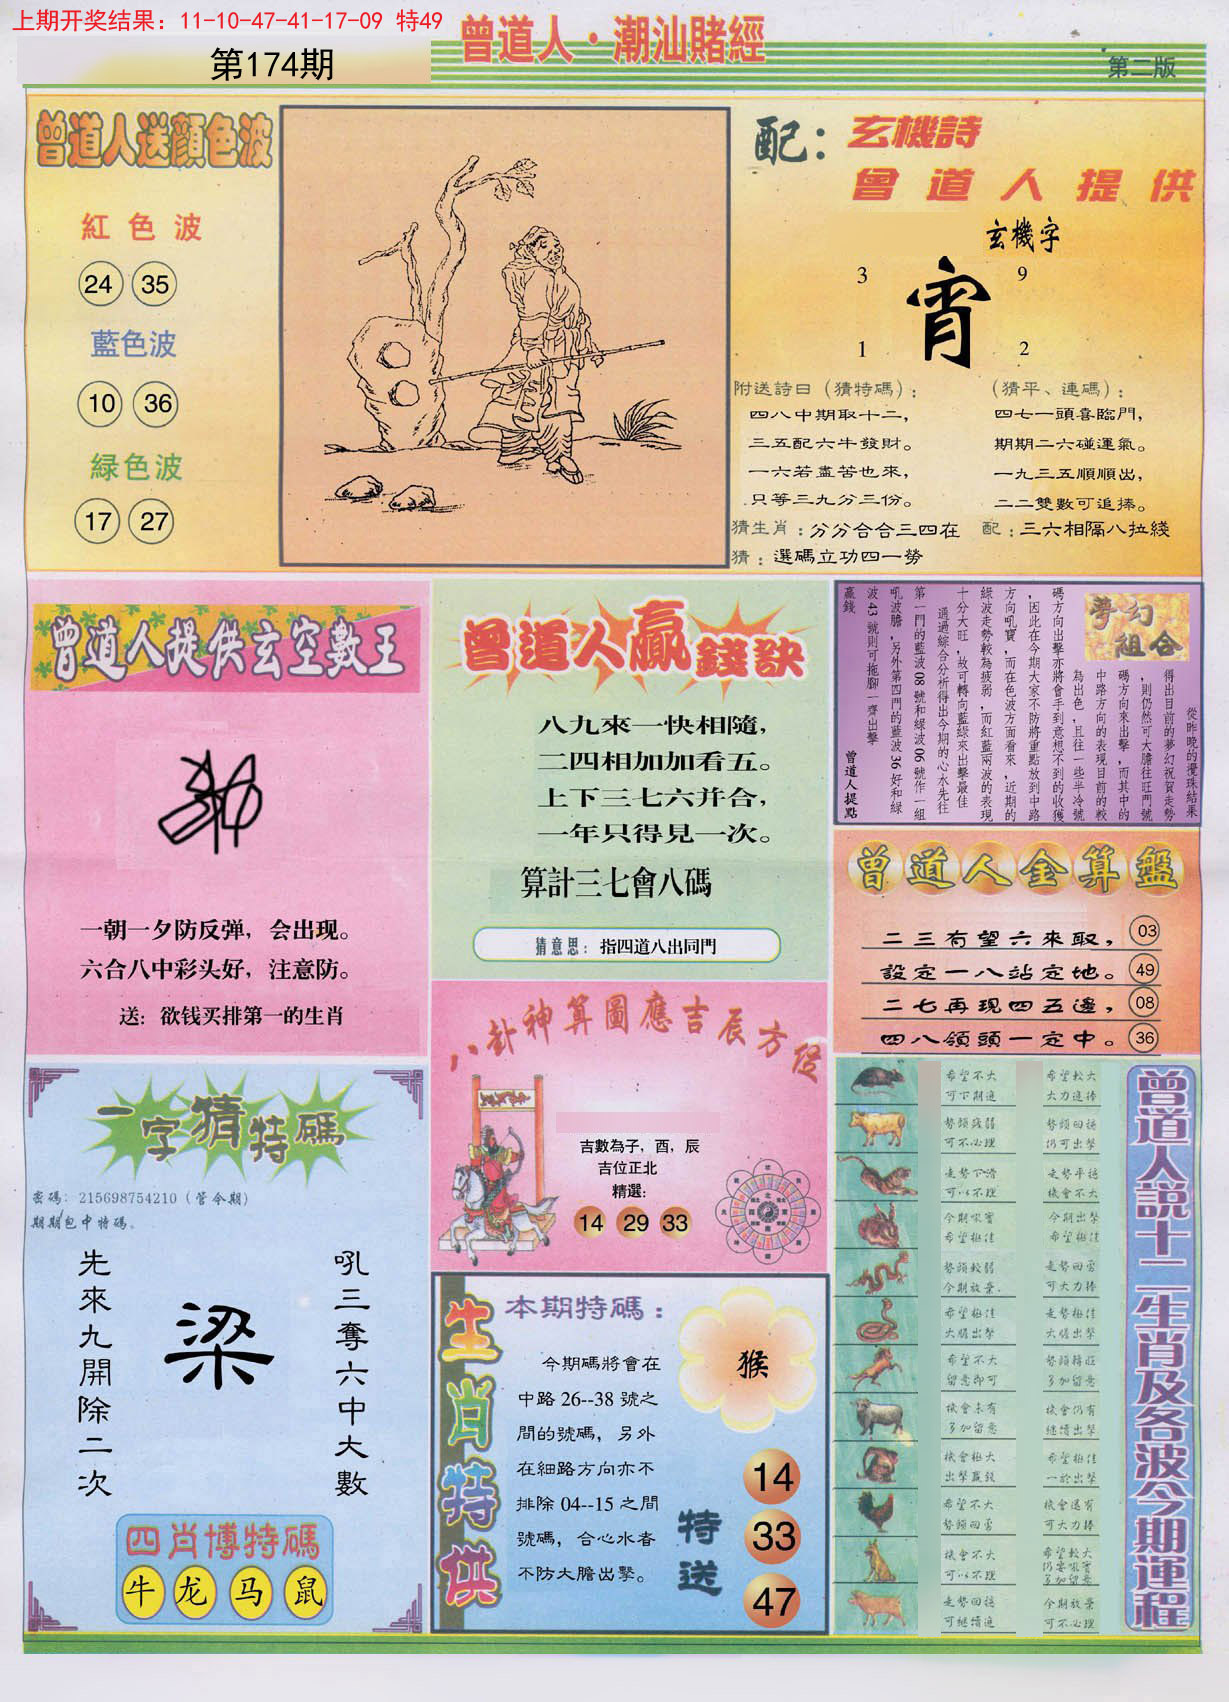 上期开奖结果：11-10-47-41-17-09 特49
第174期
曾道人·潮汕賭經
第二版
曾道人送顏色波
紅色波
24 35
藍色波
10 36
緑色波
17 27
配：玄機詩
曾道人提供
玄機字
3 9
宵
1 2
附送詩曰（猜特碼）：
四八中期取十二，
三五配六牛發財。
一六若盡苦也來，
只等三九分三份。
猜生肖：分分合合三四在
猜：選碼立功四一勞
（猜平、連碼）：
四七一頭喜臨門，
期期二六碰運氣。
一九三五順順出，
二二雙數可追捧。
配：三六相隔八拉綫
曾道人提供玄空數王
一朝一夕防反弹，会出现。
六合八中彩头好，注意防。
送：欲钱买排第一的生肖
曾道人贏錢訣
八九來一快相隨，
二四相加加看五。
上下三七六并合，
一年只得見一次。
算計三七會八碼
猜意思：指四道八出同門
夢幻組合
從昨晚的攪珠結果
得出目前的夢幻祝賀走勢
，則仍然可大膽往旺門號
碼方向來出擊，而其中的
中路方向的表現目前的較
為出色，且往一些半冷號
碼方向出擊亦將會手到意想不到的收獲
，因此在今期大家不防將重點放到中路
方向吼寶，而在色波方面看來，近期的
綠波走勢較為疲弱，而紅藍兩波的表現
十分大旺，故可轉向藍綠來出擊最佳
通過綜合分析得出今期的心水先往
第一門的藍波08號和綠波06號作一組
吼波膽，另外第四門的藍波36好和綠
波43號則可拖腳一齊出擊
贏錢
曾道人提點
曾道人金算盤
二三有望六來取， 03
設定一八站定地。 49
二七再現四五邊， 08
四八領頭一定中。 36
一字猜特碼
密碼：215698754210（管今期）
期期包中特碼。
先來九開除二次
梁
吼三奪六中大數
四肖博特碼
牛 龙 马 鼠
八卦神算圖應吉辰方位
吉數為子，酉，辰
吉位正北
精選：
14 29 33
生肖特供
本期特碼：
今期碼將會在
中路26--38號之
間的號碼，另外
在細路方向亦不
排除04--15之間
號碼，合心水者
不防大膽出擊。
猴
特送
14
33
47
曾道人説十二生肖及各波今期運程
希望不大
可下期追
希望較大
大力追捧
勢頭殘弱
可不必理
勢頭回穩
仍可出擊
走勢下滑
可以不理
走勢平穩
機會不大
今期吼實
希望極佳
今期出擊
希望極佳
勢頭較弱
今期放棄.
走勢回勇
可大力捧
希望極佳
大膽出擊
走勢極佳
大膽出擊
希望不大
留意即可
勢頭轉旺
多加留意
機會未有
多加留意
機會仍有
繼續出擊
機會極大
出擊贏錢
希望極佳
一於出擊
希望不大
勢頭回勇
機會還有
可大力捧
機會不大
可以不理
希望較大
仍要吼實
多加留意
走勢回穩
可繼續追
今期放棄
可不必理